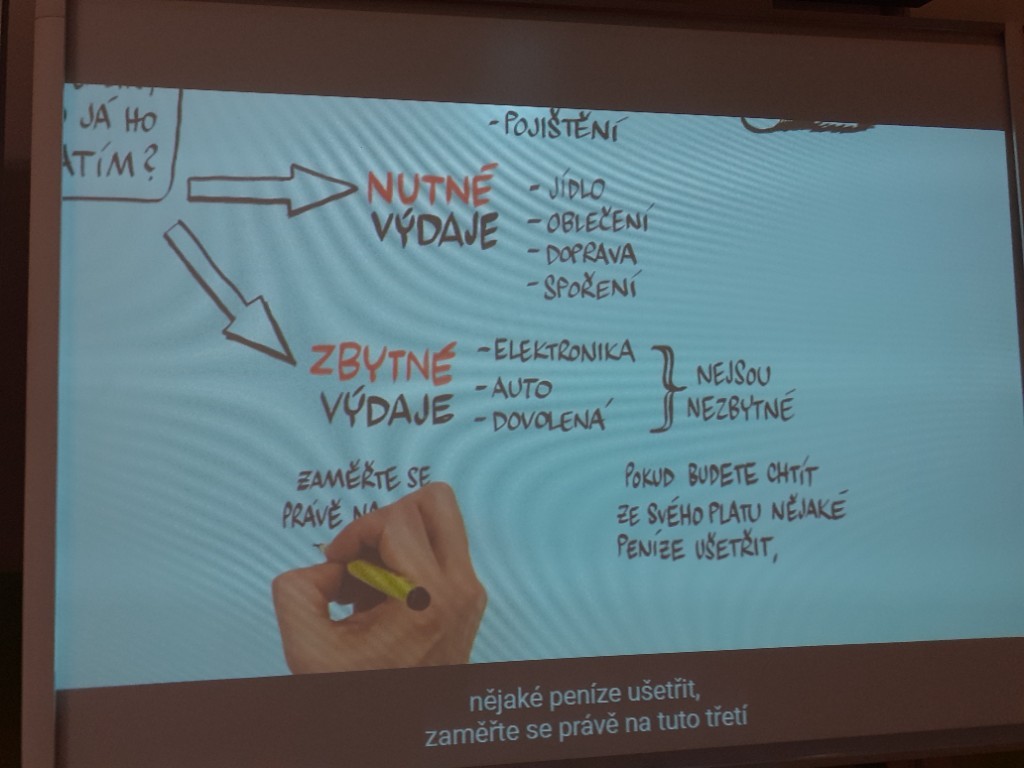 JÁ HO
-POJIŠTĚNÍ
NUTNÉ
VÝDAJE
- JÍDLO
- OBLEČENÍ
- DOPRAVA
- SPOŘENÍ
ZBYTNÉ
VÝDAJE
- ELEKTRONIKA
- AUTO
- DOVOLENÁ
NEJSOU
NEZBYTNÉ
ZAMĚŘTE SE
PRÁVĚ NA
POKUD BUDETE CHTÍT
ZE SVÉHO PLATU NĚJAKÉ
PENÍZE UŠETŘIT,
nějaké peníze ušetřit,
zaměřte se právě na tuto třetí